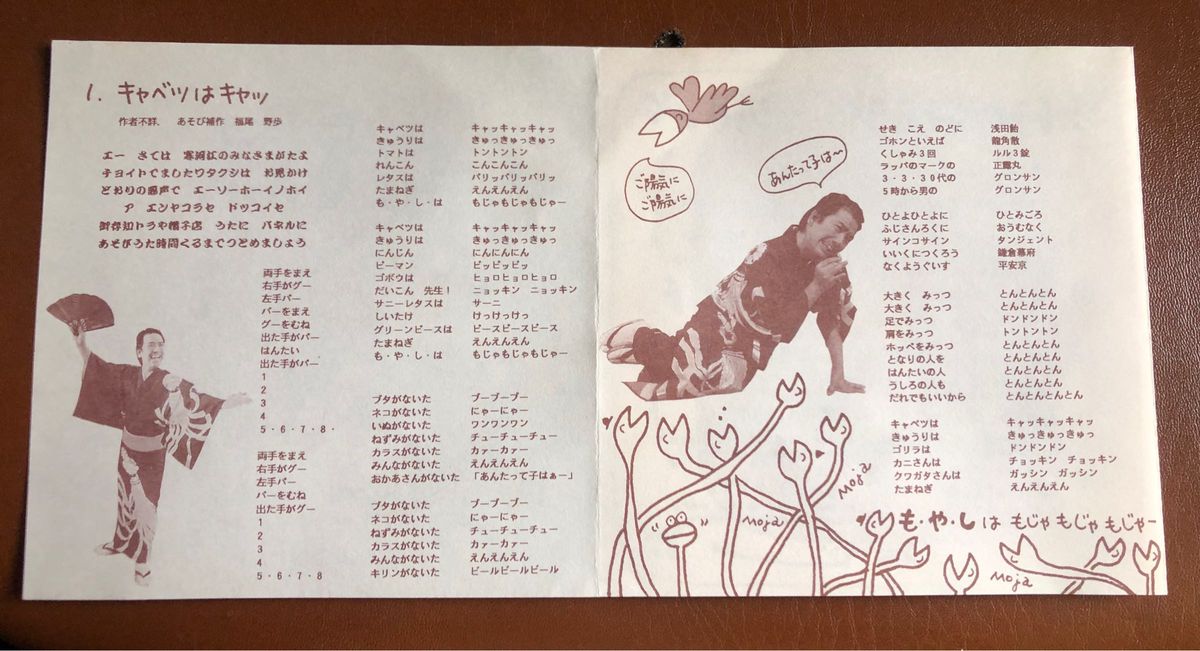 1. キャベツはキャッ
作者不詳、 あそび補作 福尾 野歩
エー さては 寒河江のみなさまがたよ
チョイトでましたワタクシは お見かけ
どおりの悪声で エーソーホーイノホイ
ア エンヤコラセ ドッコイセ
御存知トラや帽子店 うたに パネルに
あそびうた時間くるまでつとめましょう
両手をまえ
右手がグー
左手パー
パーをまえ
グーをむね
出た手がパー
はんたい
出た手がパー
1
2
3
4
5・6・7・8・
両手をまえ
右手がグー
左手パー
パーをむね
出た手がグー
1
2
3
4
5・6・7・8
キャベツは キャッキャッキャッ
きゅうりは きゅっきゅっきゅっ
トマトは トントントン
れんこん こんこんこん
レタスは パリッパリッパリッ
たまねぎ えんえんえん
も・や・し・は もじゃもじゃもじゃー
キャベツは キャッキャッキャッ
きゅうりは きゅっきゅっきゅっ
にんじん にんにんにん
ピーマン ピッピッピッ
ゴボウは ヒョロヒョロヒョロ
だいこん 先生! ニョッキン ニョッキン
サニーレタスは サーニ
しいたけ けっけっけっ
グリーンピースは ピースピースピース
たまねぎ えんえんえん
も・や・し・は もじゃもじゃもじゃー
ブタがないた ブーブーブー
ネコがないた にゃーにゃー
いぬがないた ワンワンワン
ねずみがないた チューチューチュー
カラスがないた カァーカァー
みんながないた えんえんえん
おかあさんがないた 「あんたって子はぁー」
ブタがないた ブーブーブー
ネコがないた にゃーにゃー
ねずみがないた チューチューチュー
カラスがないた カァーカァー
みんながないた えんえんえん
キリンがないた ビールビールビール
ご陽気に
ご陽気に
あんたって子は〜
せき こえ のどに 浅田飴
ゴホンといえば 龍角散
くしゃみ3回 ルル3錠
ラッパのマークの 正露丸
3・3・30代の グロンサン
5時から男の グロンサン
ひとよひとよに ひとみごろ
ふじさんろくに おうむなく
サインコサイン タンジェント
いいくにつくろう 鎌倉幕府
なくようぐいす 平安京
大きく みっつ とんとんとん
大きく みっつ とんとんとん
足でみっつ ドンドンドン
肩をみっつ トントントン
ホッペをみっつ とんとんとん
となりの人を とんとんとん
はんたいの人 とんとんとん
うしろの人も とんとんとん
だれでもいいから とんとんとんとん
キャベツは キャッキャッキャッ
きゅうりは きゅっきゅっきゅっ
ゴリラは ドンドンドン
カニさんは チョッキン チョッキン
クワガタさんは ガッシン ガッシン
たまねぎ えんえんえん
も・や・し は もじゃ もじゃ もじゃー
Moja
Moja
Moja